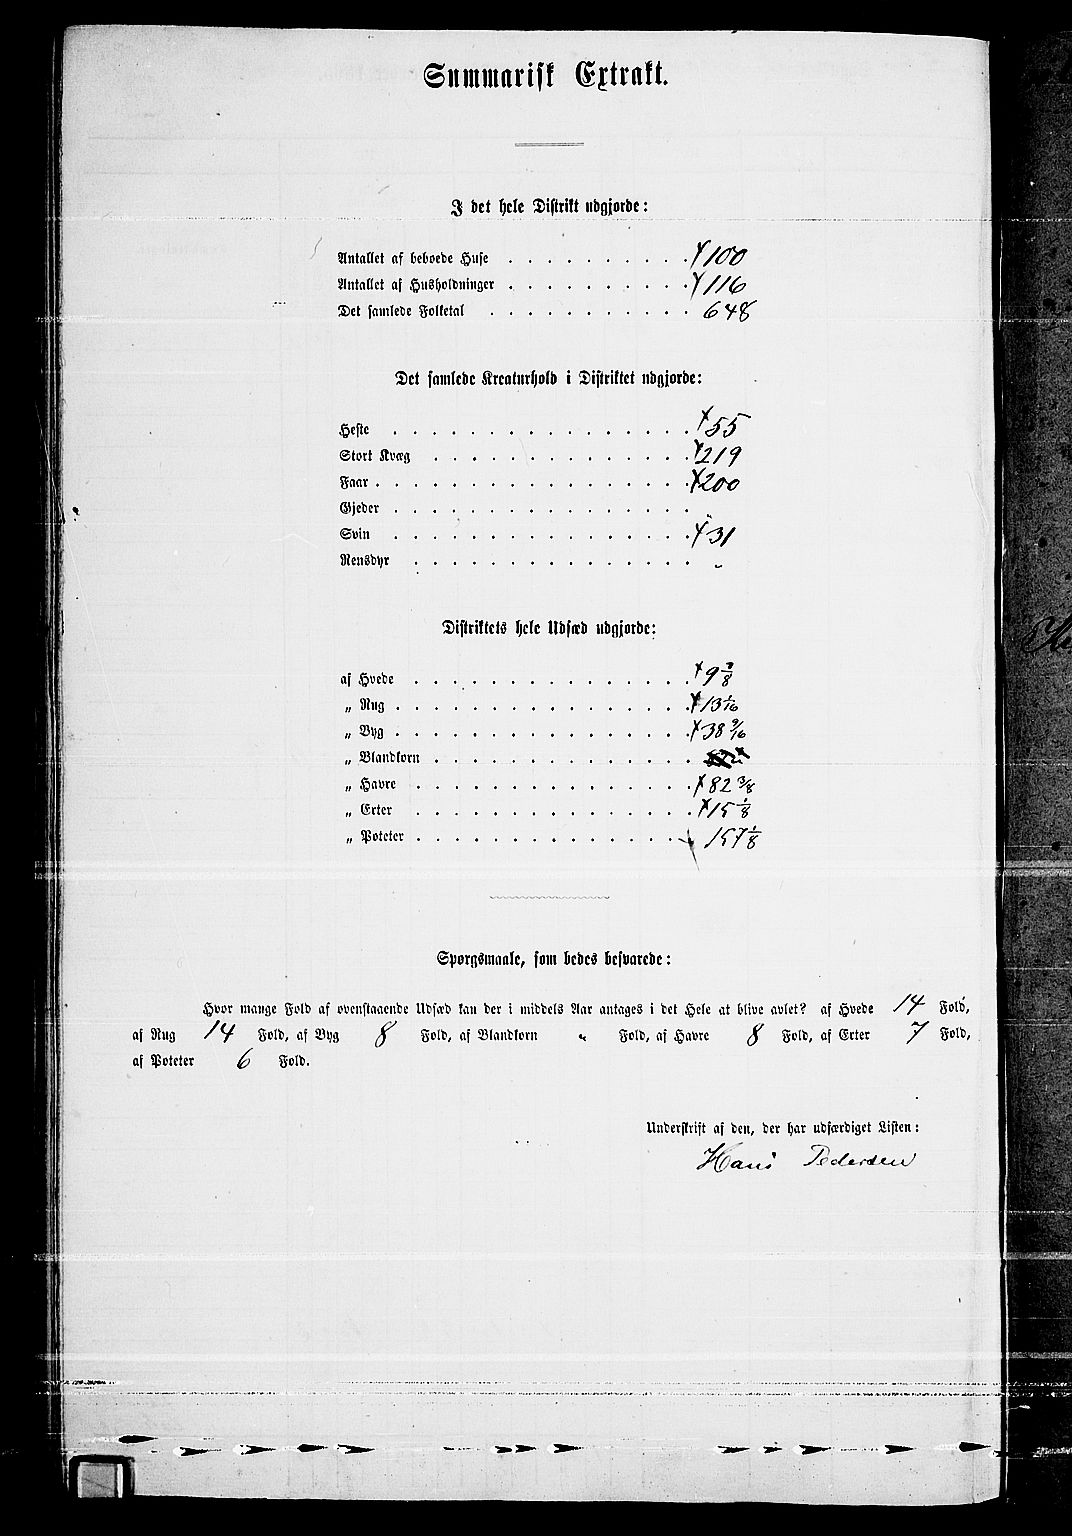 Summarisk Extrakt.
I det hele Distrikt udgjorde:
Antallet af beboede Huse . . . . . . . . . . 100
Antallet af Husholdninger . . . . . . . . . . 116
Det samlede Folketal . . . . . . . . . . . 648
Det samlede Kreaturhold i Distriktet udgjorde:
Heste . . . . . . . . . . . . . . . . 55
Stort Kvæg . . . . . . . . . . . . . . 219
Faar . . . . . . . . . . . . . . . . . 200
Gjeder . . . . . . . . . . . . . . . . "
Svin . . . . . . . . . . . . . . . . 31
Rensdyr . . . . . . . . . . . . . . . "
Distriktets hele Udsæd udgjorde:
af Hvede . . . . . . . . . . . . . . . 9
„ Rug . . . . . . . . . . . . . . . . 13 1/16
„ Byg . . . . . . . . . . . . . . . . 38 9/16
„ Blandkorn . . . . . . . . . . . . . .
„ Havre . . . . . . . . . . . . . . . 82 3/8
„ Erter . . . . . . . . . . . . . . . 15 1/8
„ Poteter . . . . . . . . . . . . . . 157 1/8
Spørgsmaale, som bedes besvarede:
Hvor mange Fold af ovenstaaende Udsæd kan der i middels Aar antages i det Hele at blive avlet? af Hvede 14 Fold,
af Rug 14 Fold, af Byg 8 Fold, af Blandkorn " Fold, af Havre 8 Fold, af Erter 7 Fold,
af Poteter 6 Fold.
Underskrift af den, der har udfærdiget Listen:
Hans Pedersen